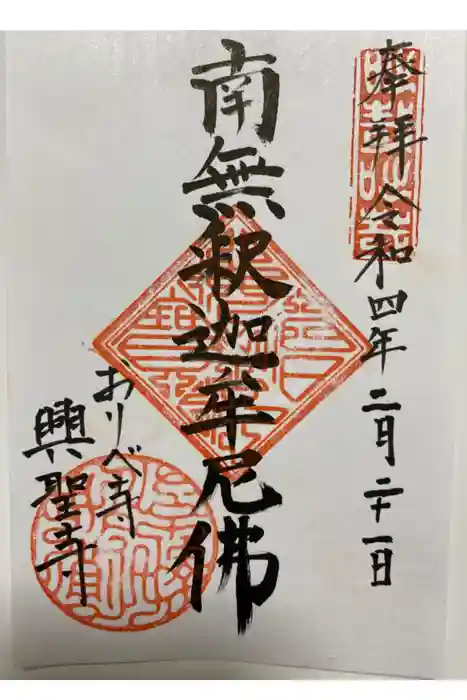 奉拜 令和四年二月二十一日
南無釈迦牟尼佛
おりべ寺
興聖寺